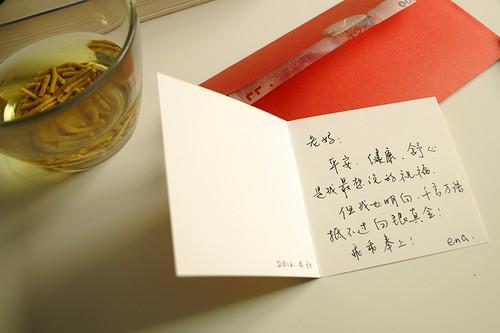 老妈:
平安、健康、舒心
是我最想说的祝福.
但我也明白,千言万语
抵不过白银真金!
乖乖奉上!
ena.
2012.
00